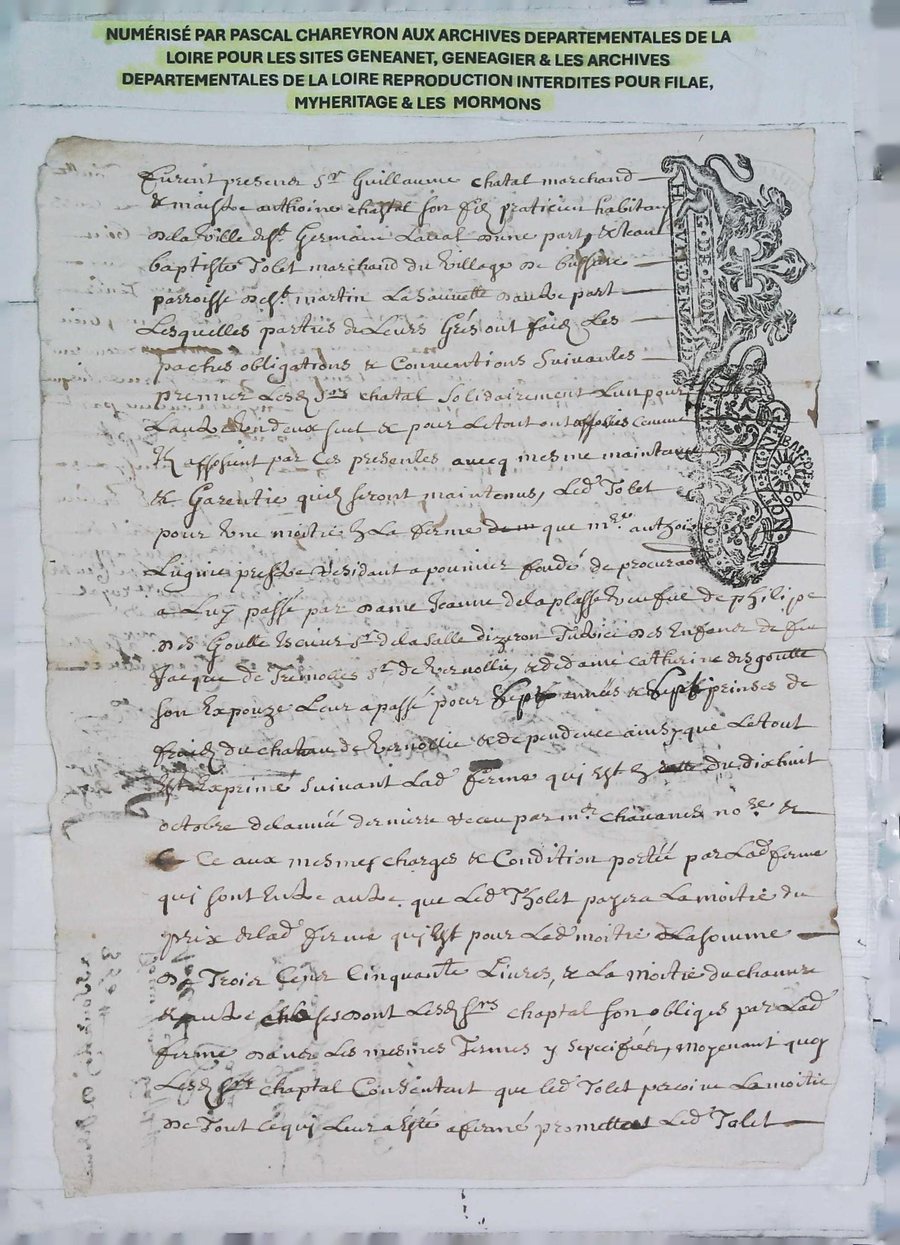 NUMÉRISÉ PAR PASCAL CHAREYRON AUX ARCHIVES DEPARTEMENTALES DE LA
LOIRE POUR LES SITES GENEANET, GENEAGIER & LES ARCHIVES
DEPARTEMENTALES DE LA LOIRE REPRODUCTION INTERDITES POUR FILAE,
MYHERITAGE & LES MORMONS
furent presener Sr Guillaume chatal marchand
& maistre anthoine chaptal son filz praticien habitan
de la ville de St Germain Laval d'une part, & Jean
baptiste Tolet marchand du village de bussure
parroisse de St martin La Sauvette d'autre part
Lesquelles parties de Leurs Grés ont faict Les
pactes obligations & Conventions Suivantes
premier Lesd Srs chatal Solidairement L'un pour
L'autre un deux seul & pour Le tout ont assosiés comme
Ilz assosient par ces presentes avecq mesme maintenue
& Garentie quilz seront maintenus, Led Tolet
pour une moitié La ferme que mre anthoi
prestre residant a pounier fondé de procura
a Luy passé par dame Jeanne de la plasse veufve de philipe
des Goutte Escuier Sr de la Salle dizeron Tutrice des Enfans de feu
Jacque de Tremolles Sr de vernollie, & de dame Catherine desgoutte
son Espouze Leur a passé pour Sept année & Sept prinses de
fruilz du chatau de vernollie & dependence ainsy que Le tout
Est Exprimé suivant Lad ferme qui Est du dixhuit
octobre de l'année derniere receu par me Chavanes nore &
Ce aux mesmes charges & Condition portée par Lad ferme
qui sont Entre autre. que Led Tholet payera La moitié du
prix de lad ferme qui Est pour Lad moitié La somme
de Trois Cens Cinquante Livres, & La moitié du chanvre
& autre choses dont Lesd Srs chaptal son obliges par Lad
ferme dans Les mesmes Termes y Specifiées, moyenant quoy
Lesd Srs chaptal Consentent que led Tolet percoive La moitié
de Tout Ce qui Leur a Esté afermé promettant Led Tolet
G. DE LION
GEN. D. LION